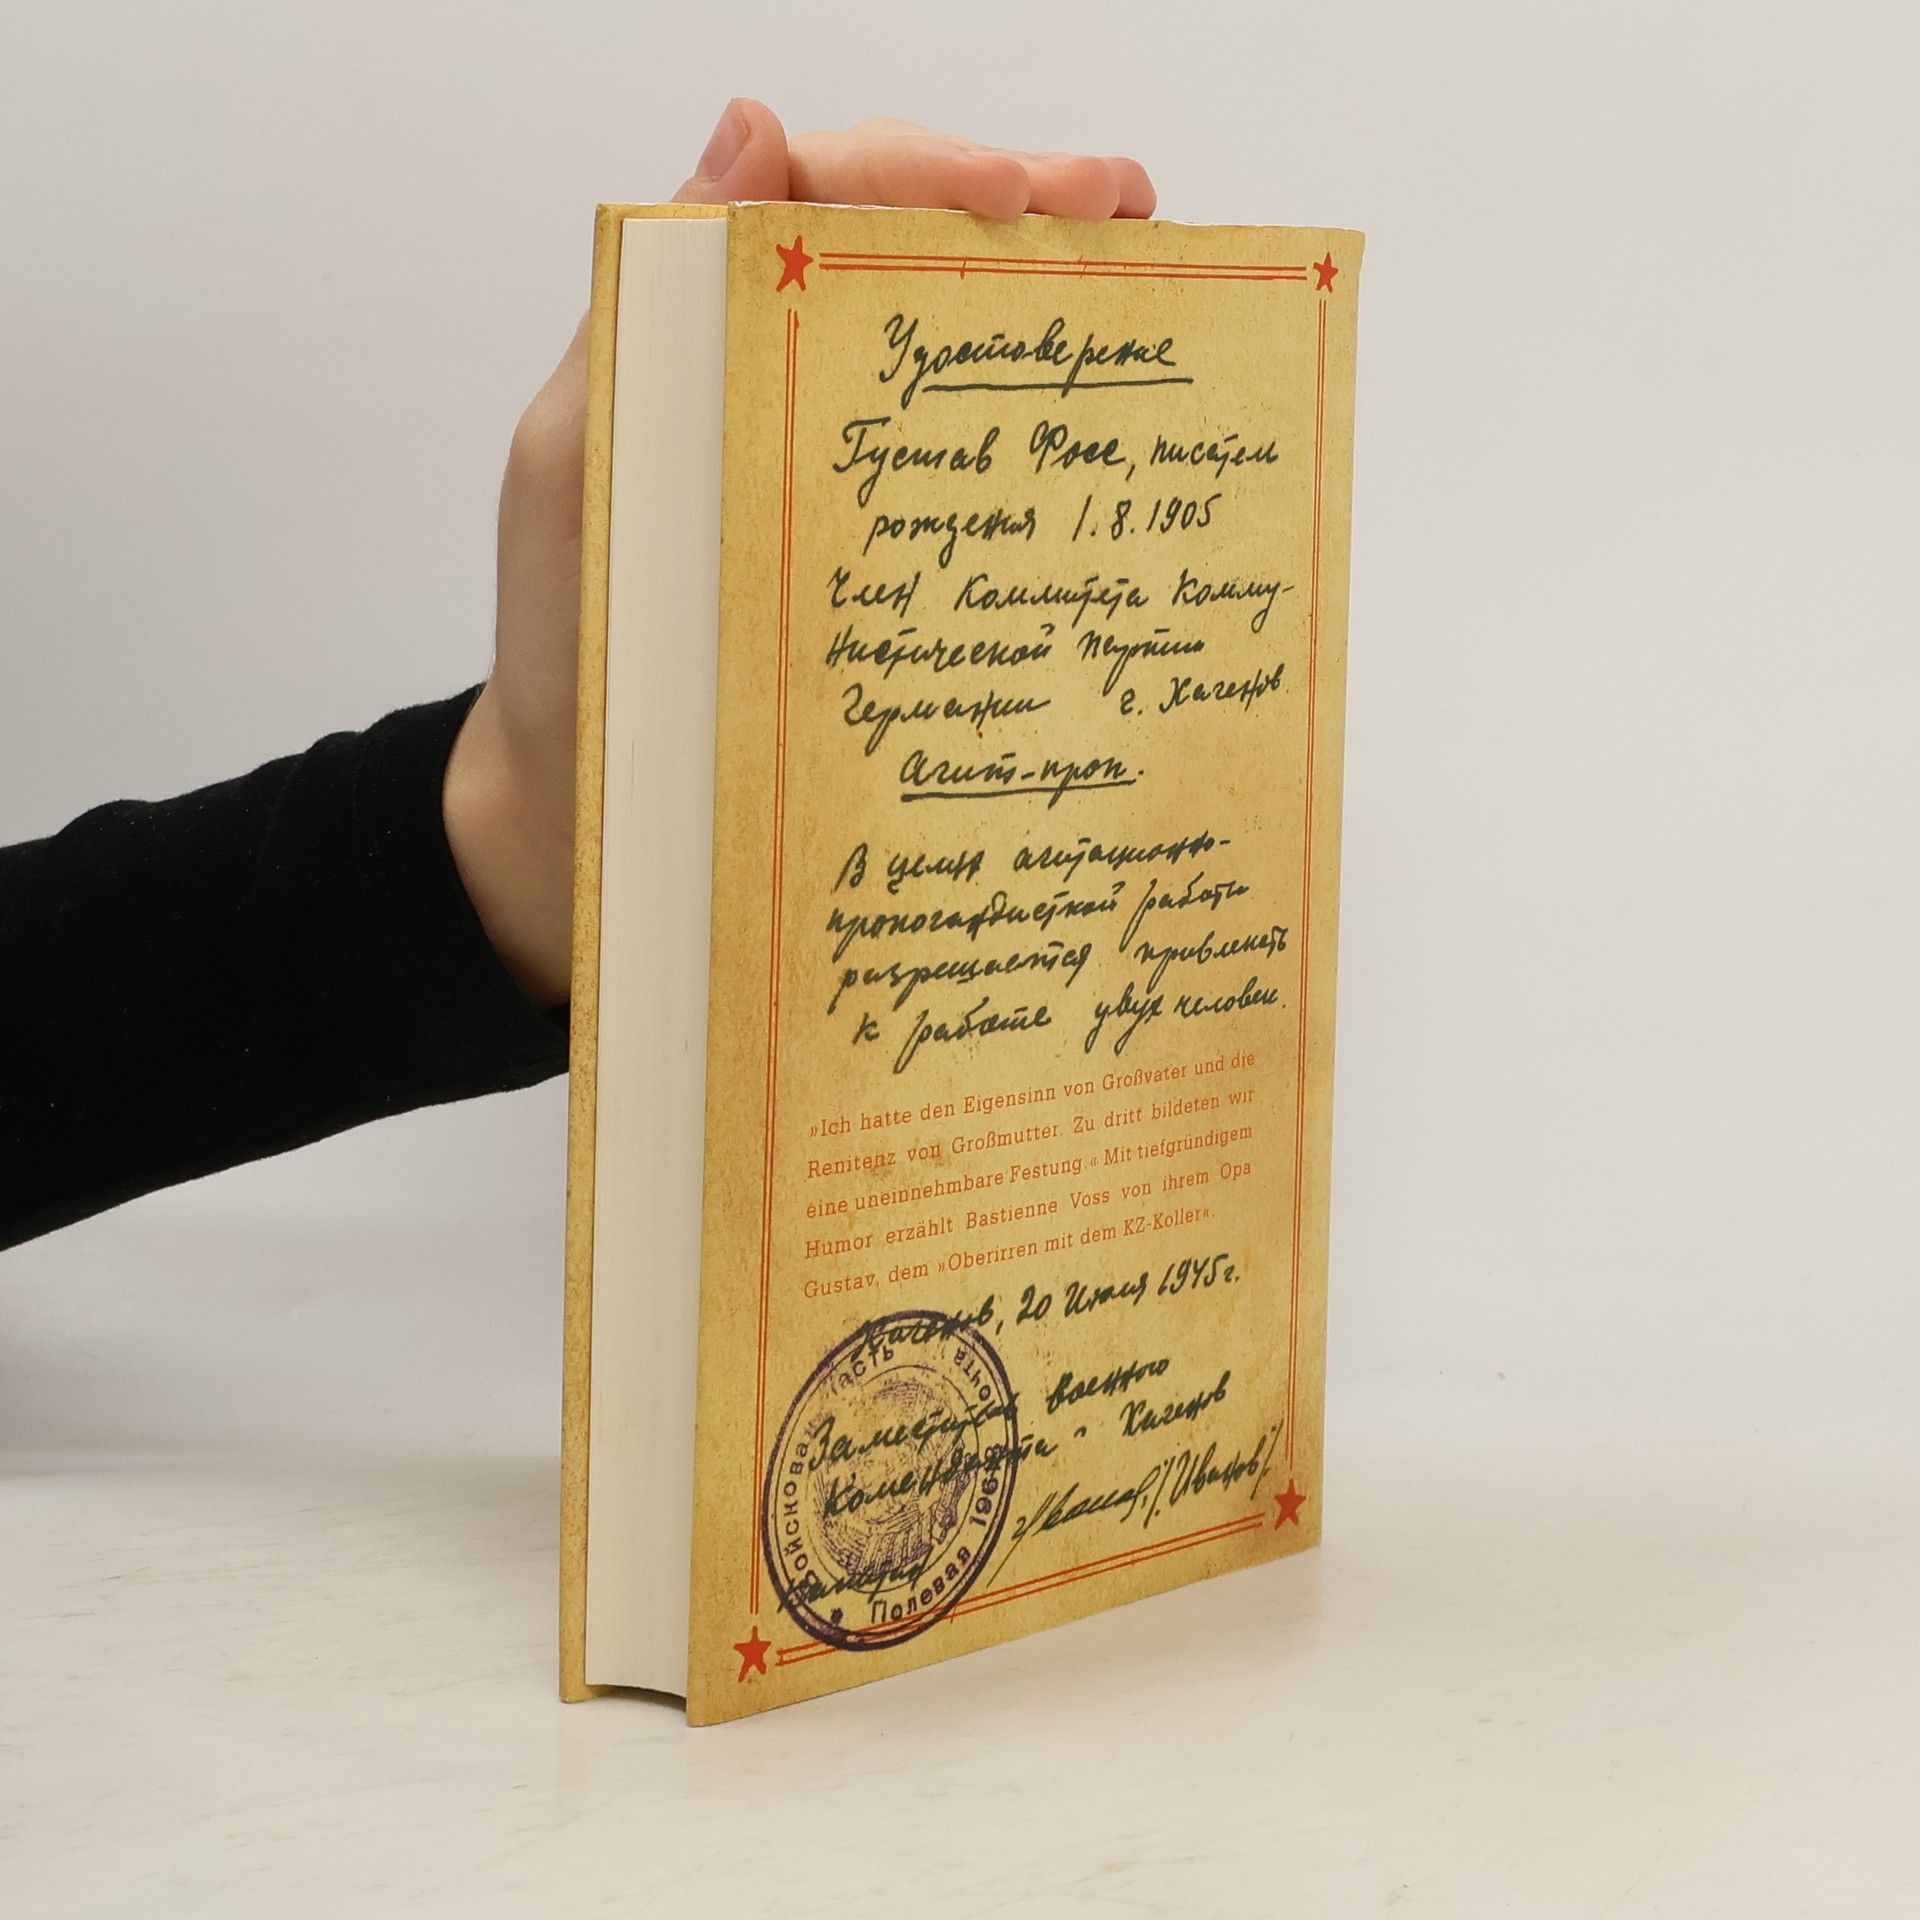 Удостоверение
Густав Фосс, писатель
рождения 1.8.1905
Член Коммитета Комму-
нистической партии
Германии г. Хагенов
Агит-проп.
В целях агитационно-
пропогандисткой работы
разрешается привлекать
к работе двух человек.
»Ich hatte den Eigensinn von Großvater und die
Renitenz von Großmutter. Zu dritt bildeten wir
eine uneinnehmbare Festung.« Mit tiefgründigem
Humor erzählt Bastienne Voss von ihrem Opa
Gustav, dem »Oberirren mit dem KZ-Koller«.
Хагенов, 20 Июля 1945г.
Заместитель военного
коменданта г. Хагенов
/Иванов/
Войсковая часть
Полевая почта